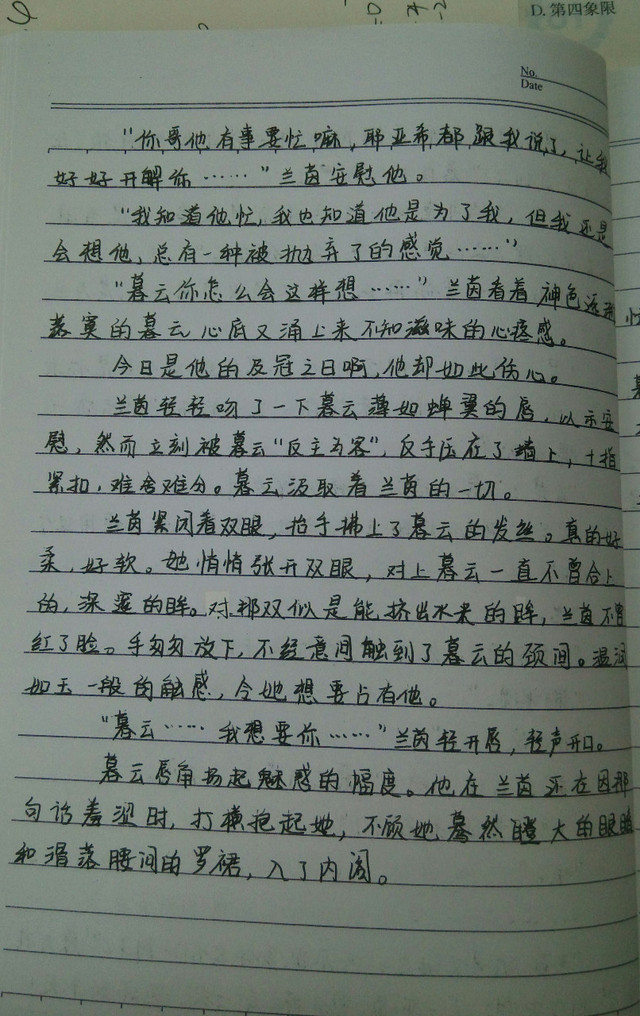 D. 第四象限
No.
Date
“你哥他有事要忙嘛,耶亚希都跟我说了,让我
好好开解你……”兰茵安慰他。
“我知道他忙,我也知道他是为了我,但我还是
会想他,总有一种被抛弃了的感觉……”
“暮云你怎么会这样想……”兰茵看着神色
落寞的暮云心底又涌上来不知滋味的心疼感。
今日是他的及冠之日啊,他却如此伤心。
兰茵轻轻吻了一下暮云薄如蝉翼的唇,以示安
慰,然而立刻被暮云“反主为客”,反手压在了墙上,十指
紧扣,难舍难分。暮云汲取着兰茵的一切。
兰茵紧闭着双眼,抬手拂上了暮云的发丝。真的好
柔,好软。她悄悄张开双眼,对上暮云一直不曾合上
的,深邃的眸。对那双似是能挤出水来的眸,兰茵不曾
红了脸。手匆匆放下,不经意间触到了暮云的颈间。温润
如玉一般的触感,令她想要占有他。
“暮云……我想要你……”兰茵轻开唇,轻声开口。
暮云唇角扬起魅惑的幅度。他在兰茵还在因那
句话羞涩时,打横抱起她,不顾她蓦然瞪大的眼睛
和滑落腰间的罗裙,入了内阁。